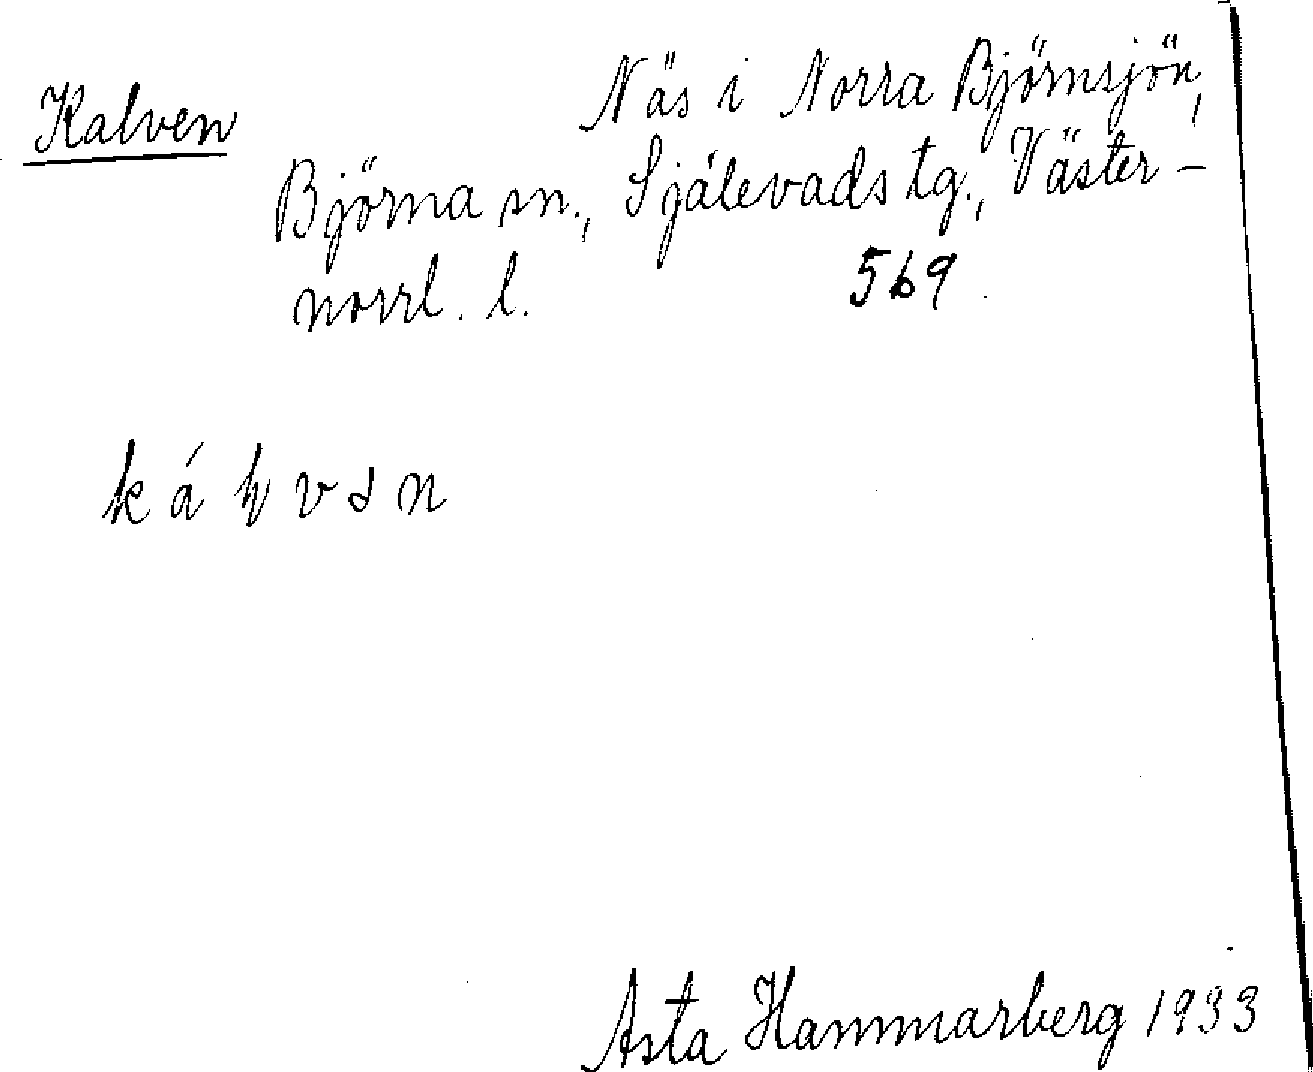 Kalven
Näs i Norra Björnsjön,
Björna sn., Själevads tg., Väster-
norrl. l. 569.
Asta Hammarberg 1933